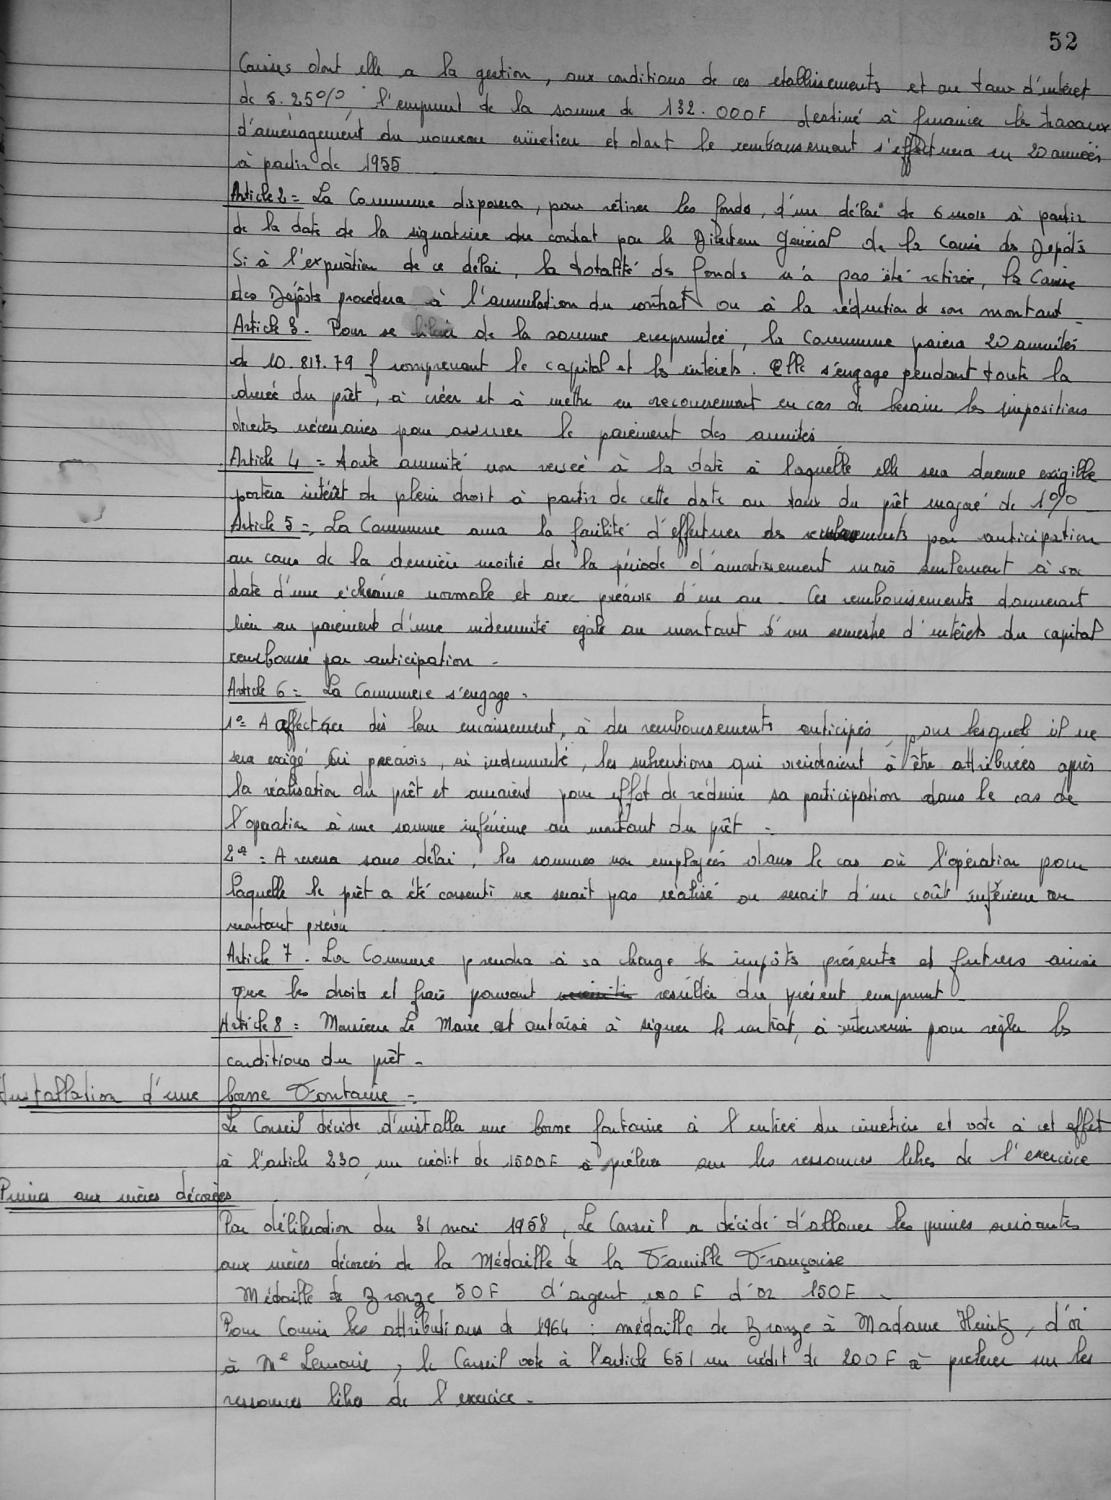 52
Caisses dont elle a la gestion, aux conditions de ces établissements et au taux d'intéret
de 5.25%, l'emprunt de la somme de 132.000F destiné à financer les travaux
d'aménagement du nouveau cimetière et dont le remboursement s'effectuera en 20 années
à partir de 1955
Article 2 = La Commune disposera, pour retirer les fonds, d'un délai de 6 mois à partir
de la date de la signature du contrat par le Directeur Général de la Caisse des Dépôts
Si à l'expiration de ce délai, la totalité des fonds n'a pas été retirée, la Caisse
des Dépôts procédera à l'annulation du contrat ou à la réduction de son montant
Article 3. Pour se libérer de la somme empruntée, la Commune paiera 20 annuités
de 10.817.79 f comprenant le capital et les intérêts. Elle s'engage pendant toute la
durée du prêt, à créer et à mettre en recouvrement en cas de besoin les impositions
directes nécessaires pour assurer le paiement des annuités
Article 4 = Toute annuité non versée à la date à laquelle elle sera devenue exigible
portera intérêt de plein droit à partir de cette date au taux du prêt majoré de 1%
Article 5 =, La Commune aura la facilité d'effectuer des remboursements par anticipation
au cours de la dernière moitié de la période d'amortissement mais seulement à sa
date d'une échéance normale et avec préavis d'un an. Ces remboursements donneront
lieu au paiement d'une indemnité égale au montant d'un semestre d'intérêts du capital
remboursé par anticipation -
Article 6 = La Commune s'engage -
1° = A affecter dès leur encaissement, à des remboursements anticipés, pour lesquels il ne
sera exigé ni préavis, ni indemnité, les subventions qui viendraient à être attribuées après
la réalisation du prêt et auraient pour effet de réduire sa participation dans le cas de
l'opération à une somme inférieure au montant du prêt -
2° = A reverser sans délai, les sommes non employées dans le cas où l'opération pour
laquelle le prêt a été consenti ne serait pas réalisé ou serait d'un coût inférieur au
montant prévu
Article 7 - La Commune prendra à sa charge les impôts présents et futurs ainsi
que les droits et frais pouvant résulter du présent emprunt
Article 8 = Monsieur Le Maire est autorisé à signer le contrat, à intervenir pour régler les
conditions du prêt -
Installation d'une borne Fontaine =
Le Conseil décide d'installer une borne fontaine à l'entrée du cimetière et vote à cet effet
à l'article 230 un crédit de 1500F à prélever sur les ressources libres de l'exercice
Primes aux mères décorées
Par délibération du 31 mai 1958, Le Conseil a décidé d'allouer les primes suivantes
aux mères décorées de la Médaille de la Famille Française
Médaille de Bronze 50F d'argent 100 F d'or 150F -
Pour Couvrir les attributions de 1964 : médaille de Bronze à Madame Heintz, d'or
à Me Lemoine, le Conseil vote à l'article 651 un crédit de 200F à prélever sur les
ressources libres de l'exercice -